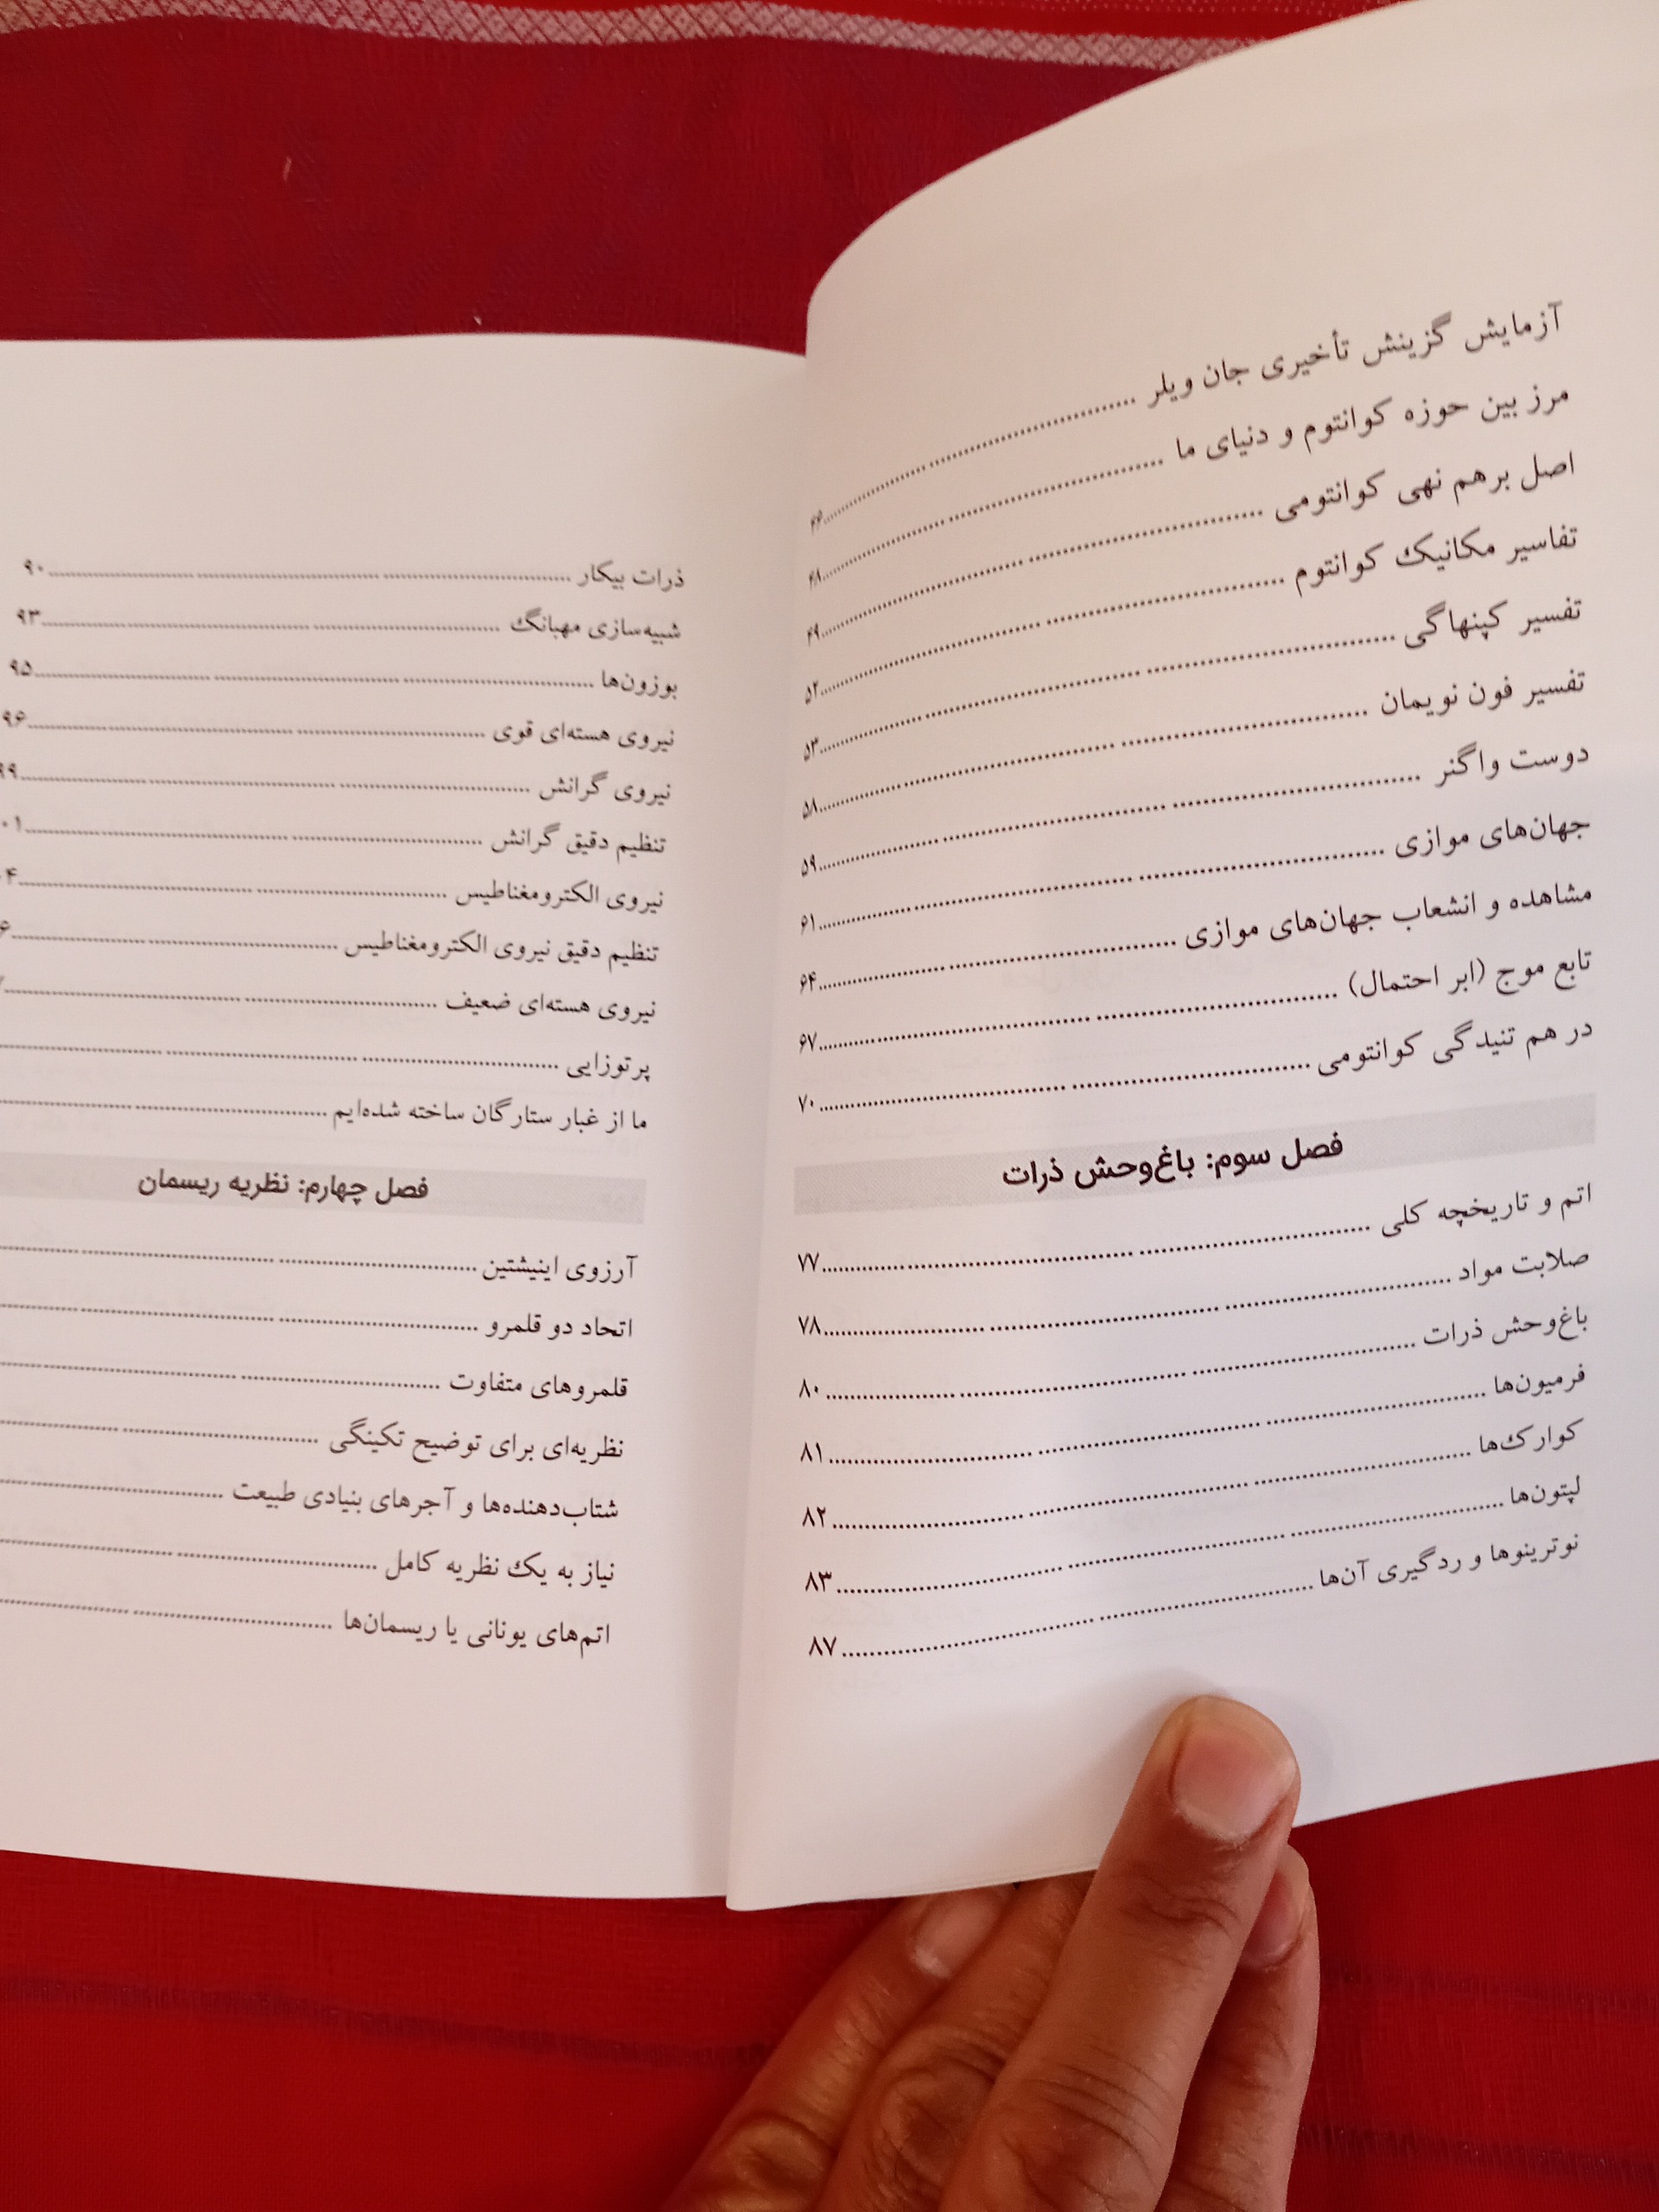 آزمایش گزینش تأخیری جان ویلر ........ ۴۶
مرز بین حوزه کوانتوم و دنیای ما ........ ۴۸
اصل برهم نهی کوانتومی ........ ۴۹
تفاسیر مکانیک کوانتوم ........ ۵۲
تفسیر کپنهاگی ........ ۵۳
تفسیر فون نویمان ........ ۵۸
دوست واگنر ........ ۵۹
جهان‌های موازی ........ ۶۱
مشاهده و انشعاب جهان‌های موازی ........ ۶۴
تابع موج (ابر احتمال) ........ ۶۷
در هم تنیدگی کوانتومی ........ ۷۰
فصل سوم: باغ‌وحش ذرات
اتم و تاریخچه کلی ........ ۷۷
صلابت مواد ........ ۷۸
باغ‌وحش ذرات ........ ۸۰
فرمیون‌ها ........ ۸۱
کوارک‌ها ........ ۸۲
لپتون‌ها ........ ۸۳
نوترینوها و ردگیری آن‌ها ........ ۸۷
ذرات بیکار ........ ۹۰
شبیه‌سازی مهبانگ ........ ۹۳
بوزون‌ها ........ ۹۵
نیروی هسته‌ای قوی ........ ۹۶
نیروی گرانش ........ ۹۹
تنظیم دقیق گرانش ........ ۰۱
نیروی الکترومغناطیس ........ ۴
تنظیم دقیق نیروی الکترومغناطیس ........ ۶
نیروی هسته‌ای ضعیف ........
پرتوزایی ........
ما از غبار ستارگان ساخته شده‌ایم ........
فصل چهارم: نظریه ریسمان
آرزوی اینیشتین ........
اتحاد دو قلمرو ........
قلمروهای متفاوت ........
نظریه‌ای برای توضیح تکینگی ........
شتاب‌دهنده‌ها و آجرهای بنیادی طبیعت ........
نیاز به یک نظریه کامل ........
اتم‌های یونانی یا ریسمان‌ها ........